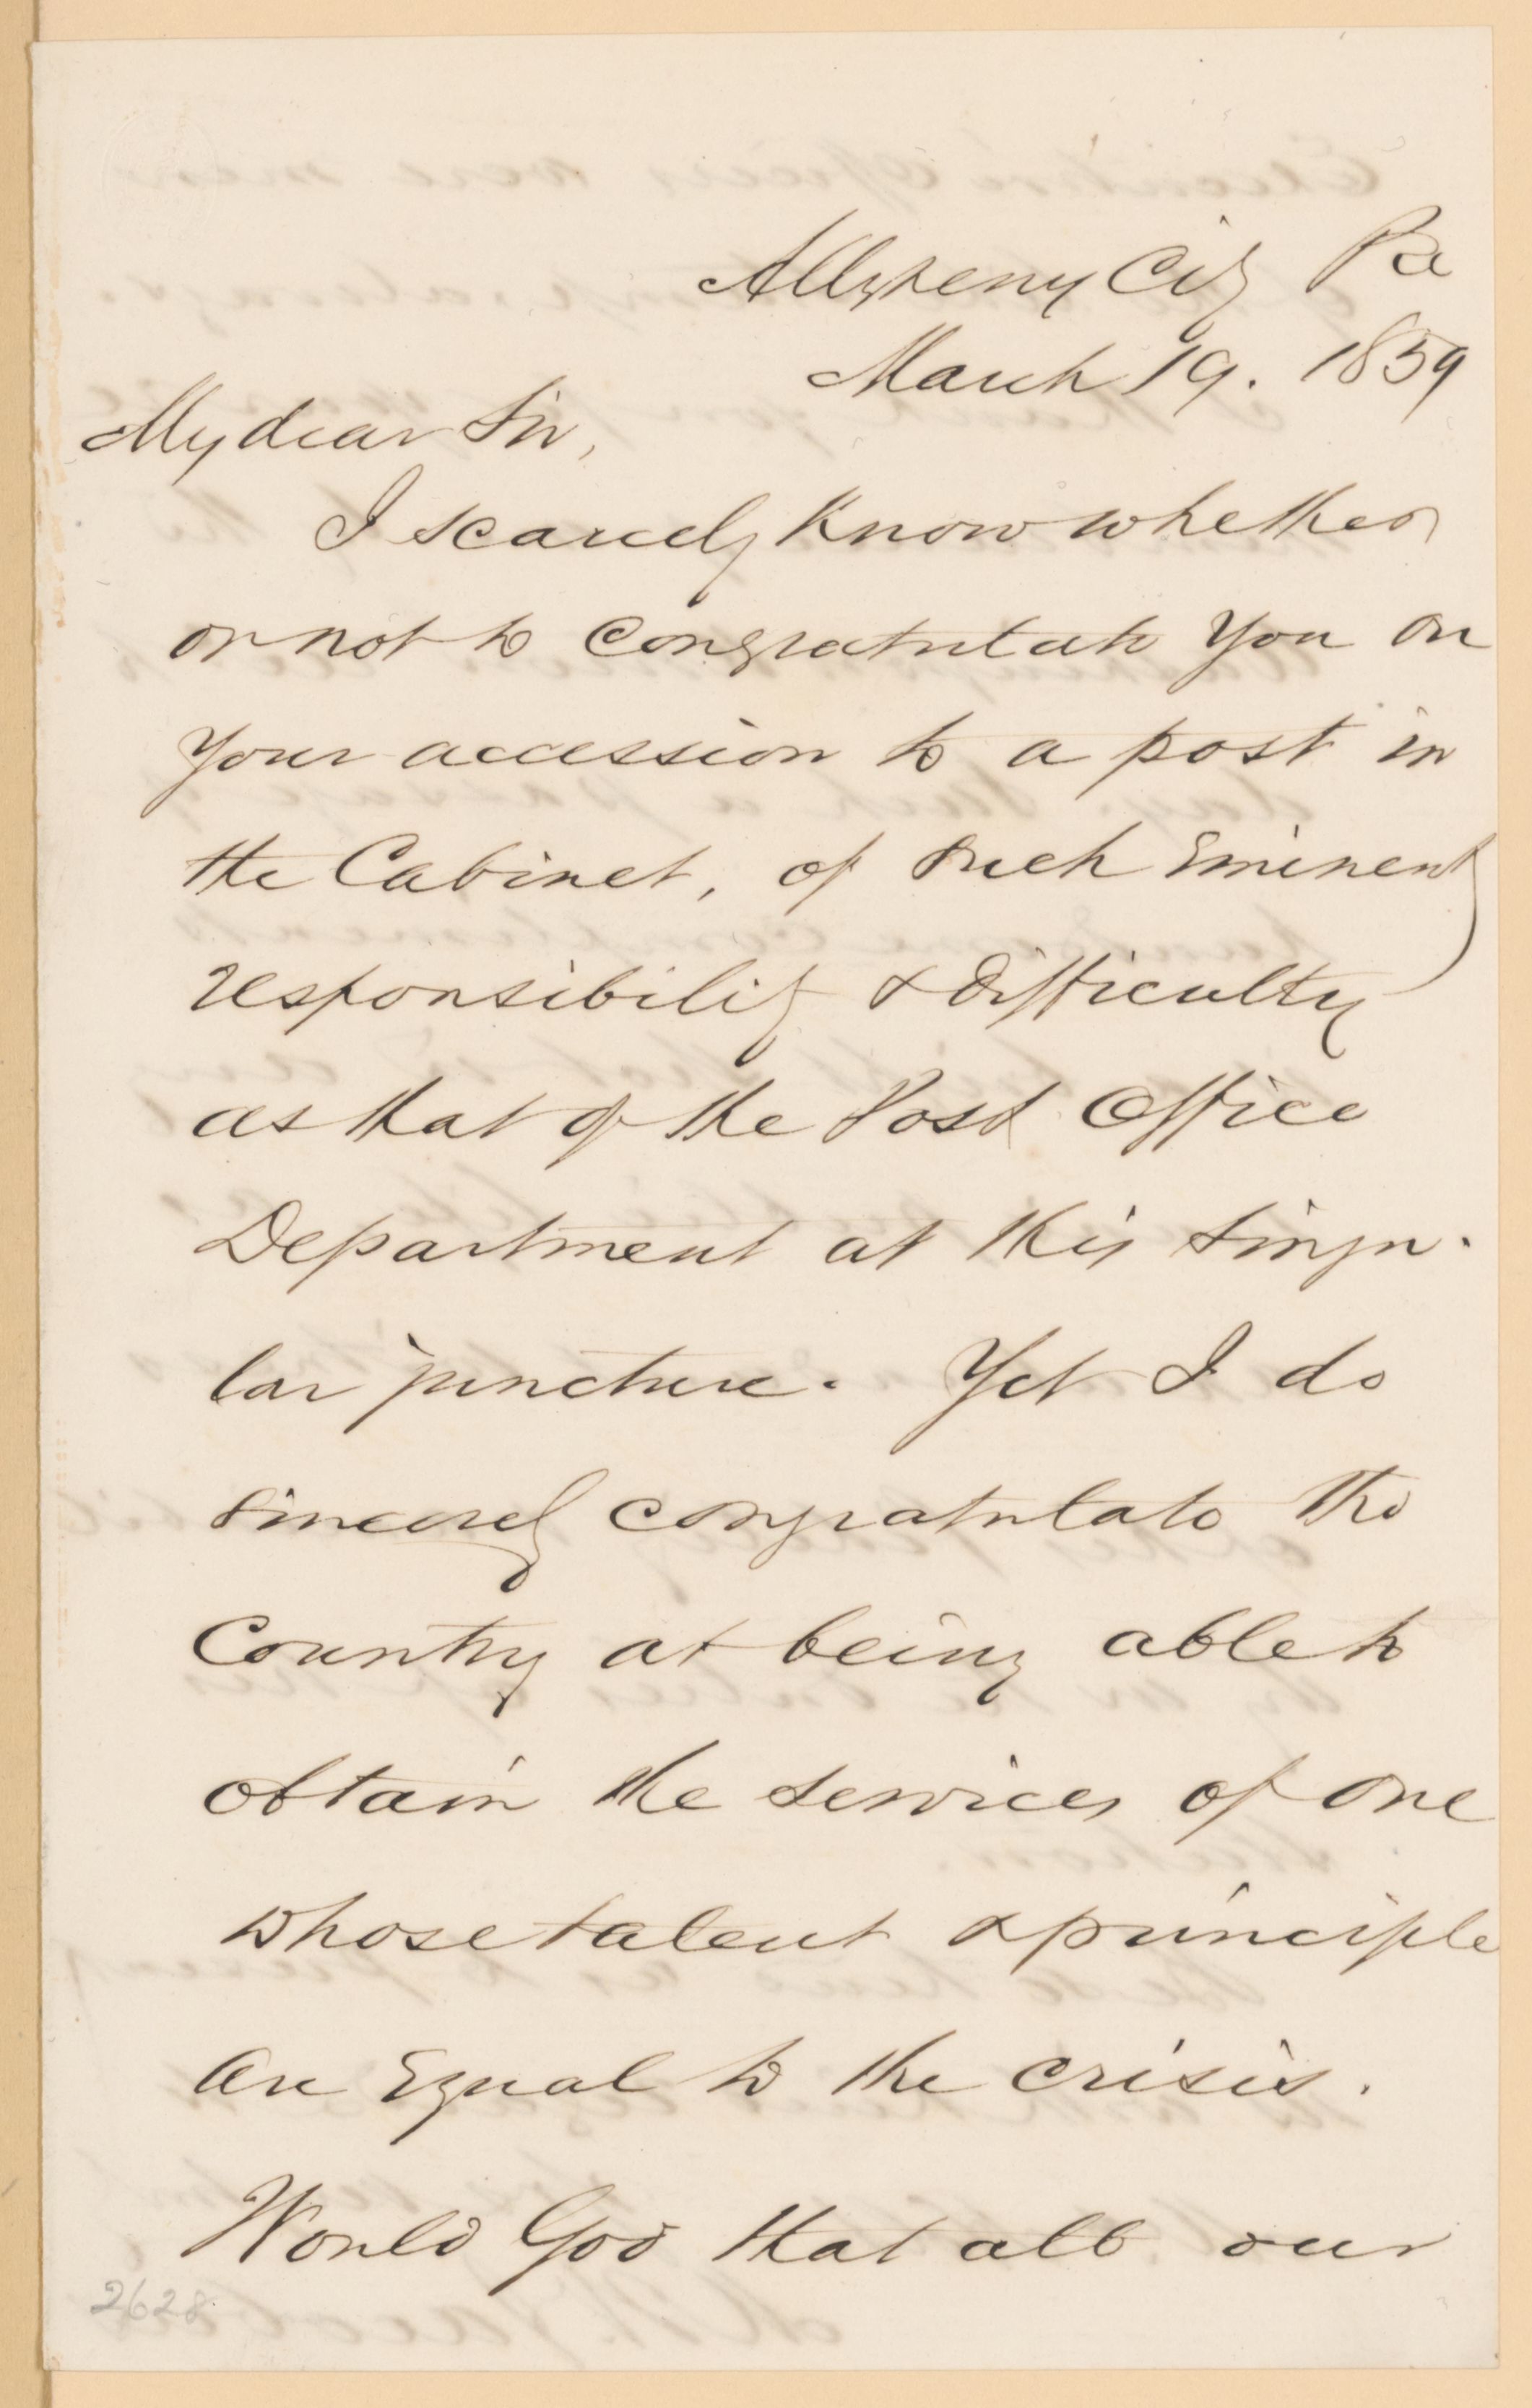 Allegheny City Pa
March 19. 1859
My dear Sir,
I scarcely know whether
or not to congratulate you on
your accession to a post in
the Cabinet, of such eminent
responsibility & difficulty
as that of the Post Office
Department at this singu-
lar juncture. Yet I do
sincerely congratulate the
Country at being able to
obtain the services of one
whose talent & principle
are equal to the crisis.
Would God that all our
2628